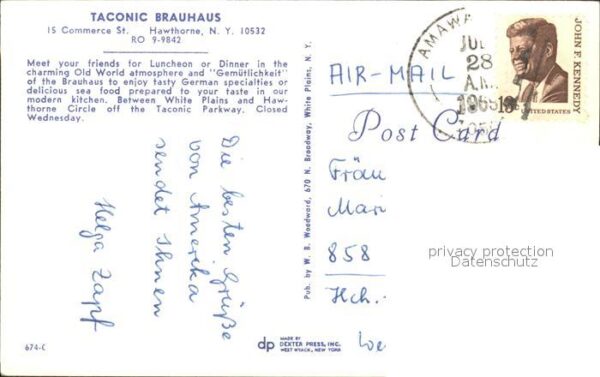 TACONIC BRAUHAUS
15 Commerce St.   Hawthorne, N. Y. 10532
RO 9-9842
Meet your friends for Luncheon or Dinner in the
charming Old World atmosphere and "Gemütlichkeit"
of the Brauhaus to enjoy tasty German specialties or
delicious sea food prepared to your taste in our
modern kitchen. Between White Plains and Haw-
thorne Circle off the Taconic Parkway. Closed
Wednesday.
Die besten Grüße
von Amerika
sendet Ihnen
Helga Zapf
674-C
Pub. by W. B. Woodward, 670 N. Broadway, White Plains, N. Y.
dp MADE BY
DEXTER PRESS, INC.
WEST NYACK, NEW YORK
AMAWA
JUL
28
A.M.
JOHN F. KENNEDY
UNITED STATES
AIR-MAIL
Post Card
Fräu
Mari
858
Hch.
privacy protection
Datenschutz